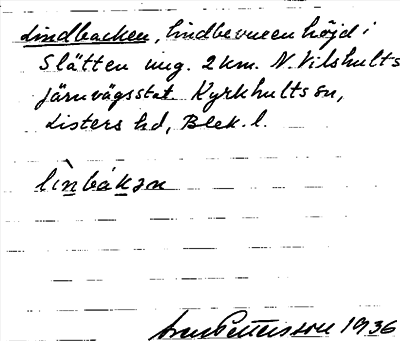 Lindbacken, lindbevuxen höjd i
Slätten ung. 2 km. N. Vilshults
järnvägsstat. Kyrkhults sn,
Listers hd, Blek. l.
lìnbákən
Pettersson 1936